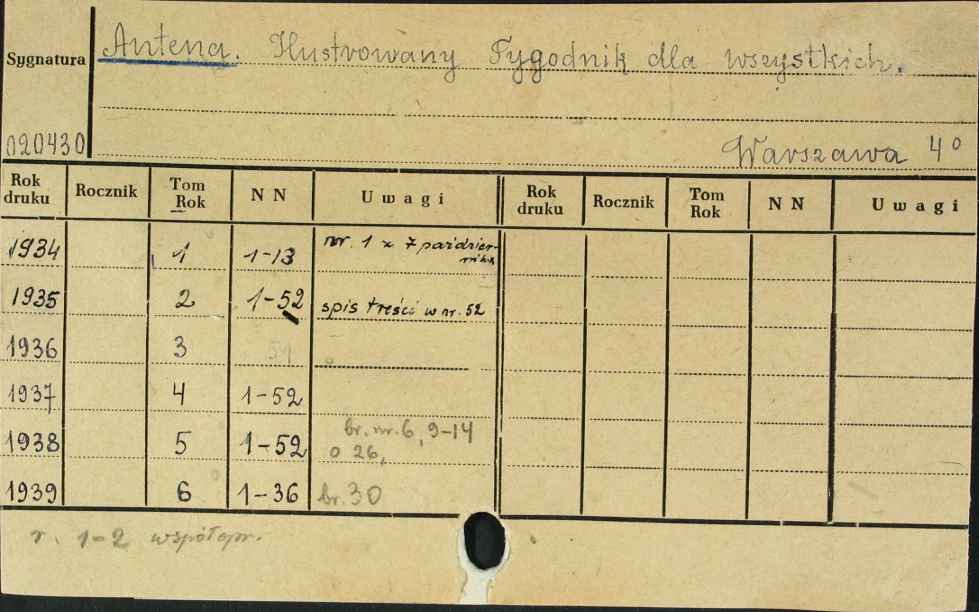 Sygnatura
Antena. Ilustrowany Tygodnik dla wszystkich.
020430
Warszawa 4º
Rok druku Rocznik Tom Rok N N Uwagi Rok druku Rocznik Tom Rok N N Uwagi
1934 1 1-13 nr. 1 z 7 październ-
nika
1935 2 1-52 spis treści w nr. 52
1936 3
1937 4 1-52
1938 5 1-52 br. nr. 6, 9-14
26,
1939 6 1-36 br. 30
r. 1-2 współopr.